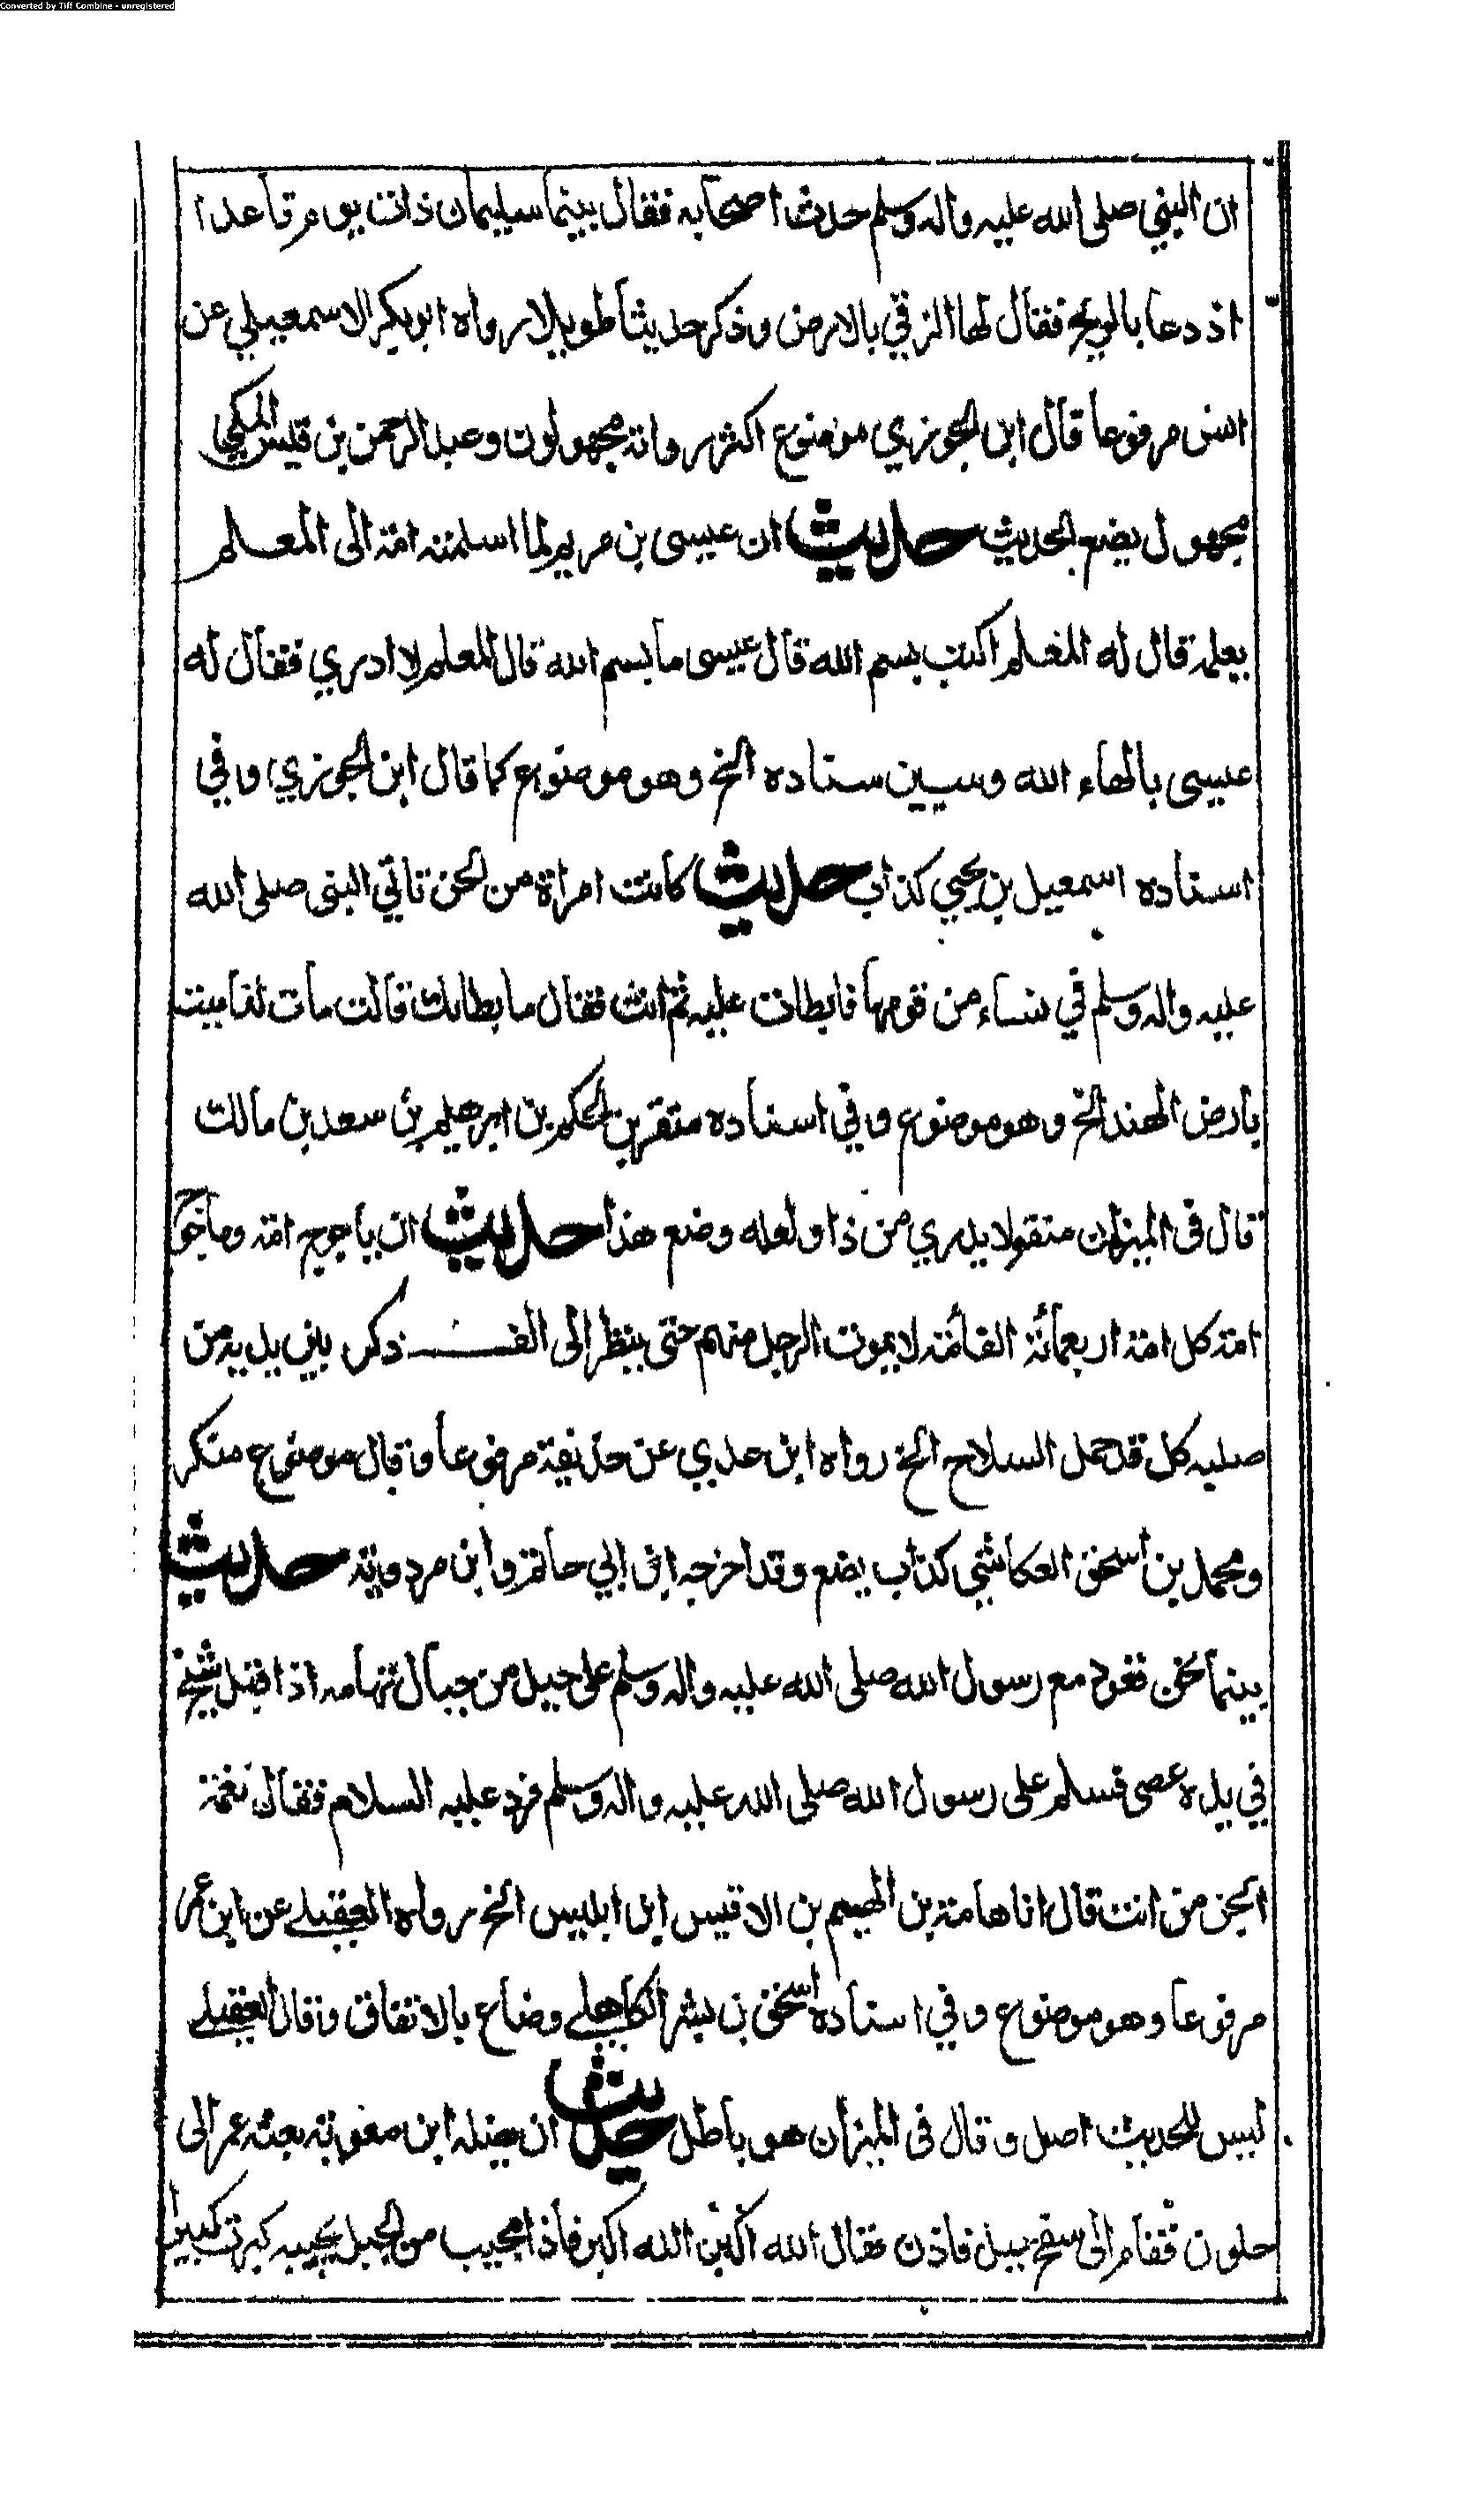 Converted by Tiff Combine - unregistered
ان النبي صلى الله عليه واله وسلم حدث اصحابه فقال بينما سليمان ذات يوم قاعدا
اذ دعا بالريح فقال لها الزقي بالارض وذكر حديثا طويلا رواه ابو بكر الاسمعيلي عن
انس مرفوعا قال ابن الجوزي موضوع اكثر رواته مجهولون وعبد الرحمن بن قيس المكي
مجهول يضع الحديث حديث ان عيسى بن مريم لما اسلمته امه الى المعلم
يعلمه قال له المعلم اكتب بسم الله قال عيسى ما بسم الله قال المعلم لا ادري فقال له
عيسى بالهاء الله وسين سناده الخ وهو موضوع كما قال ابن الجوزي وفي
اسناده اسمعيل بن يحيي كذاب حديث كانت امراة من الجن تاتي النبي صلى الله
عليه واله وسلم في نساء من قومها فابطات عليه ثم اتت فقال ما بطابك قالت مات لنا ميت
بارض الهند الخ وهو موضوع وفي اسناده منقر بن الحكم بن ابرهيم بن سعد بن مالك
قال في الميزان منقر لا يدري من ذا ولعله وضع هذا حديث ان ياجوج امة وماجوج
امة كل امة اربعمائة الف امة لا يموت الرجل منهم حتى ينظر الى الف ذكر بين يديه من
صلبه كل قد حمل السلاح الخ رواه ابن عدي عن حذيفة مرفوعا وقال موضوع منكر
ومحمد بن اسحق العكاشي كذاب يضع وقد اخرجه ابن ابي حاتم وابن مردويه حديث
بينما نحن قعود مع رسول الله صلى الله عليه واله وسلم على جبل من جبال تهامه اذا اقبل شيخ
في يده عصى فسلم على رسول الله صلى الله عليه واله وسلم فرد عليه السلام فقال نغمة
الجن من انت قال انا هامة بن الهيم بن الاقيس ابن ابليس الخ رواه العقيلي عن ابن عمر
مرفوعا وهو موضوع وفي اسناده اسحق بن بشر الكاهلي وضاع بالاتفاق وقال العقيلي
ليس للحديث اصل وقال في الميزان هو باطل حديث ان نضله ابن معوية بعثه عمر الى
حلون فقام الى سفح جبل فاذن فقال الله اكبر الله اكبر فاذا مجيب من الجبل يجيبه كبرت كبيرا